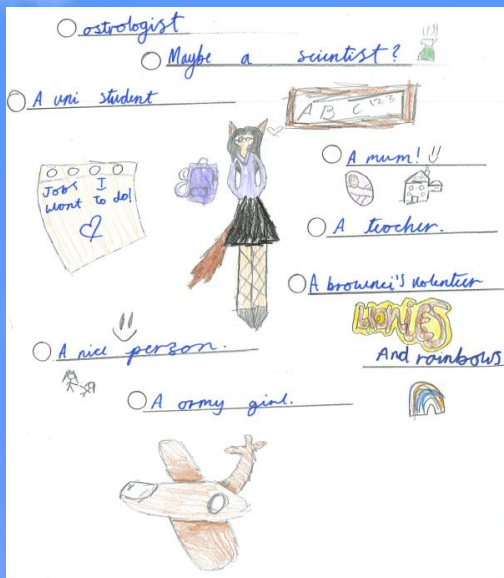 ostrologist
Maybe a scientist?
A uni student
A B C 1 2 3
A mum!
Jobs I
want to do!
A teocher.
A brownei's volenteer
brownies
And rainbows
A nice person.
A ormy girl.